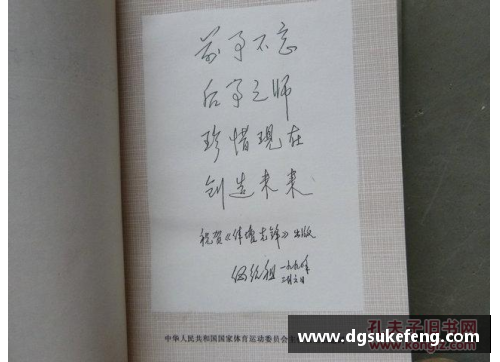 前事不忘
后事之师
珍惜现在
创造未来
祝贺《体坛先锋》出版
伍绍祖 一九九〇年
二月六日
中华人民共和国国家体育运动委员会
www.dgsukefeng.com